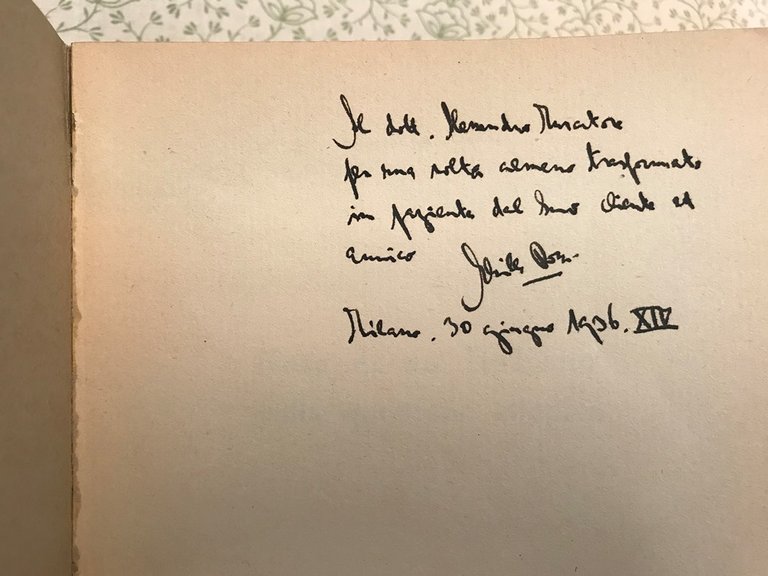 Al dott. Alessandro Muratore
per una volta almeno trasformato
in paziente dal suo cliente ed
amico
Milano, 30 giugno 1936. XIV